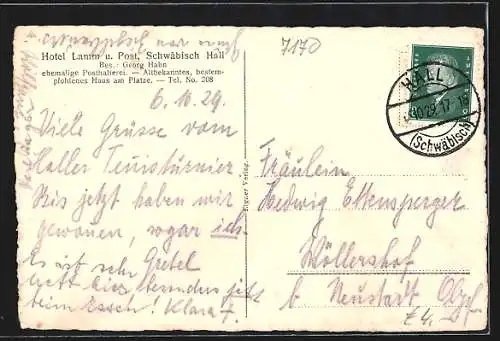 7170
Hotel Lamm u. Post, Schwäbisch Hall
Bes.: Georg Hahn
ehemalige Posthalterei. — Altbekanntes, bestem-
pfohlenes Haus am Platze. — Tel. No. 208
6.10.29.
Viele Grüsse vom
Haller Tennisturnier.
Bis jetzt haben wir
gewonnen, sogar ich.
Es ist sehr
nett hier besonders jetzt
beim Essen! Klara F.
Gretel
Eigner Verlag.
HALL
.10.29.17-1
(Schwäbisch)
Fräulein
Hedwig Ettensperger
Wöllershof
b. Neustadt Obpf.